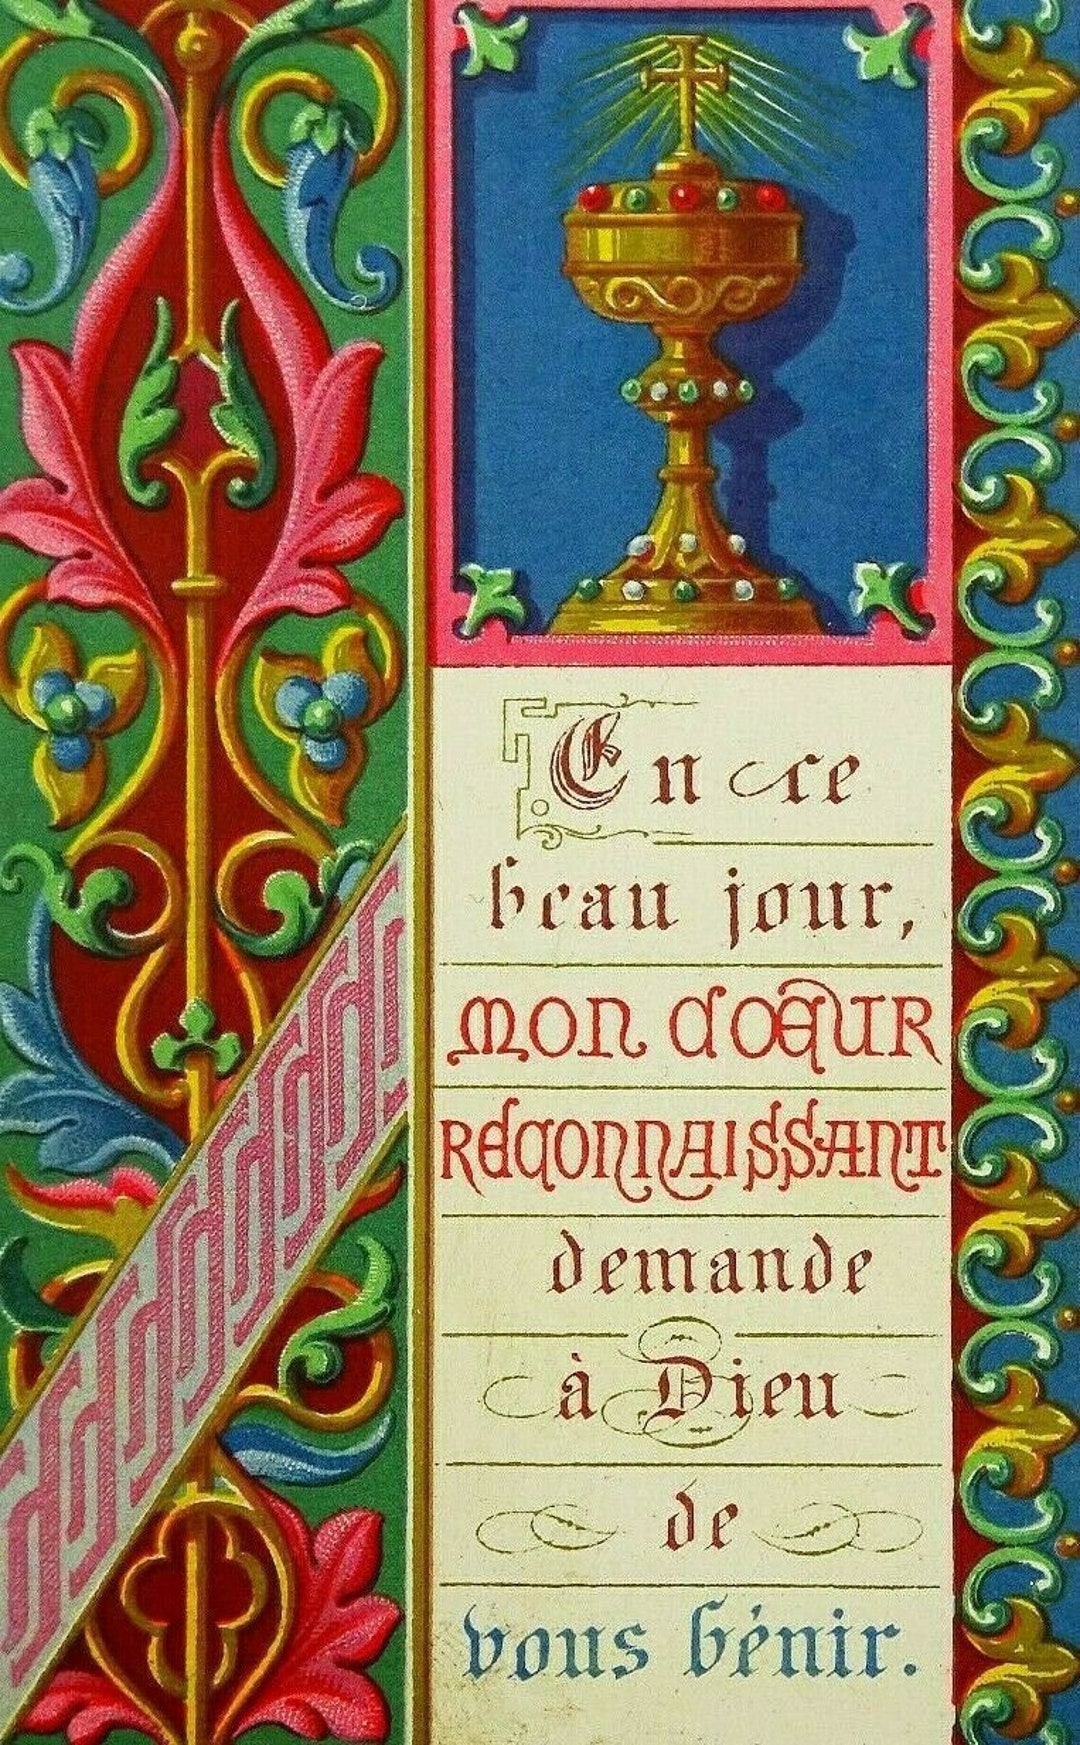 En ce
beau jour,
MON CŒUR
RECONNAISSANT
demande
à Dieu
de
vous bénir.